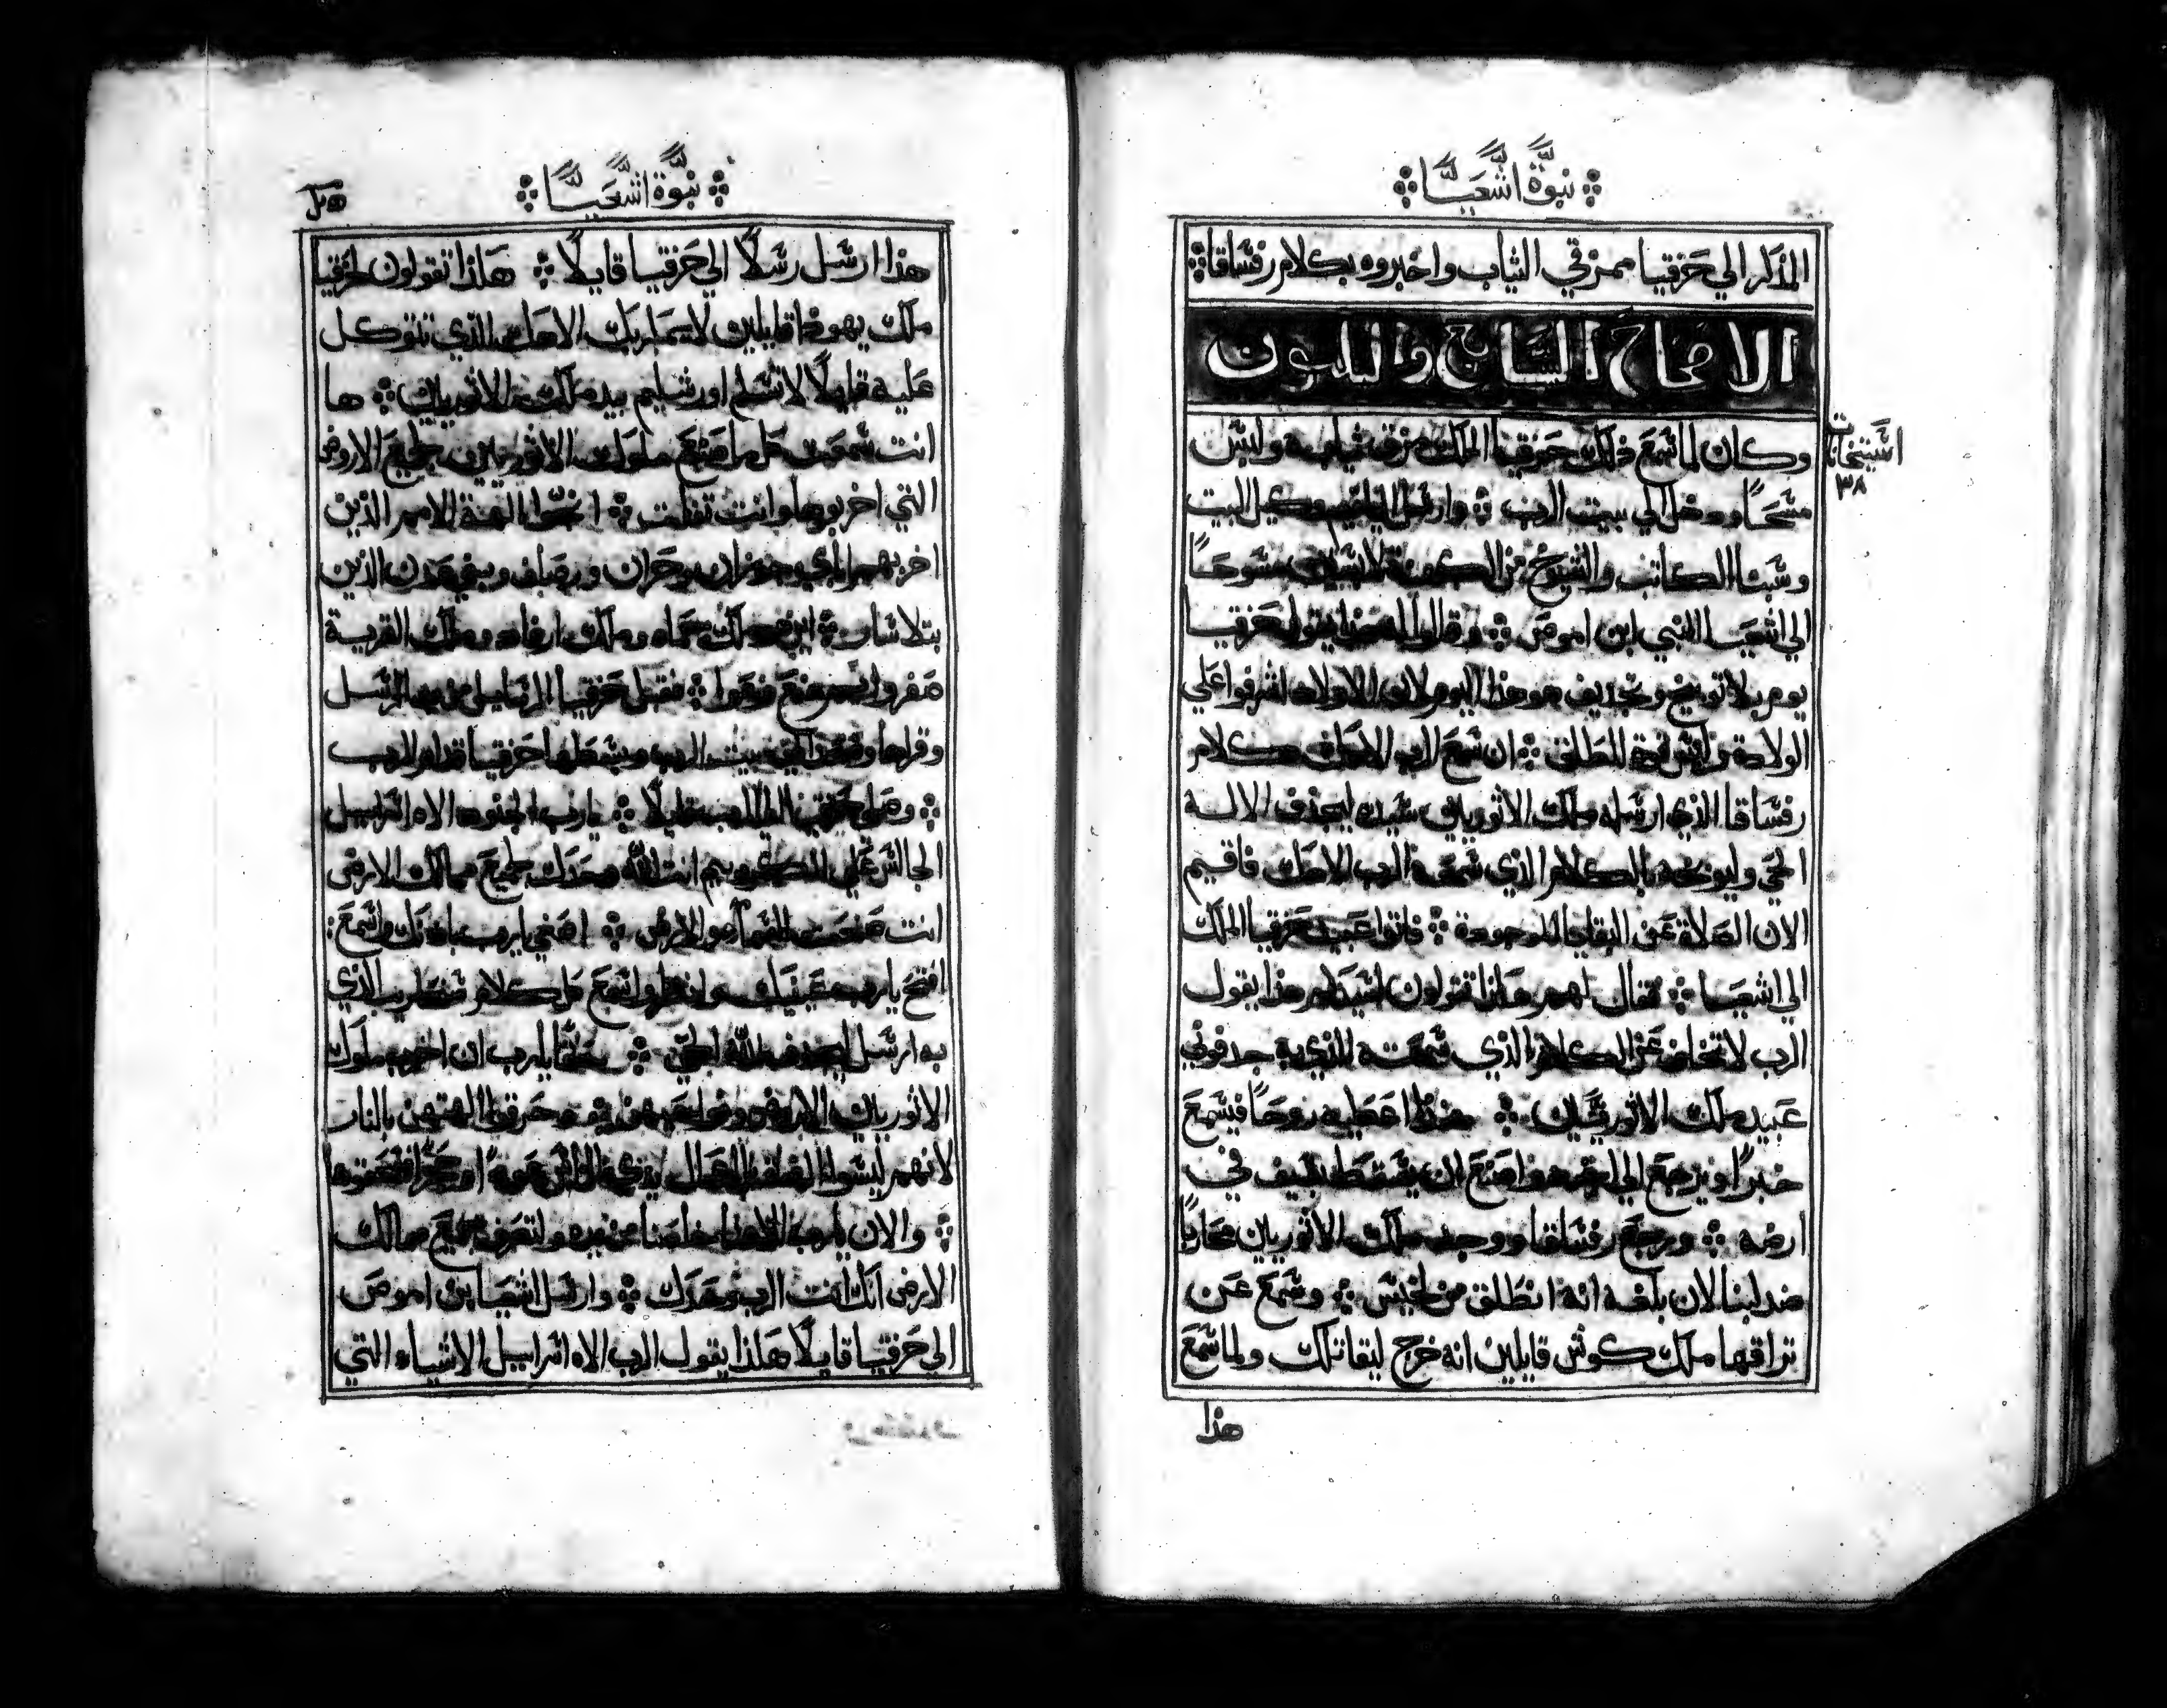 نبوة اشعيا
المذكر الي حزقيا ممزقي الثياب واخبروه بكلام رفساقا
الاصحاح السابع والثلثون
وكان لما سمع ذلك حزقيا الملك مزق ثيابه ولبس
مسحا ودخل الي بيت الرب وارسل وكيل البيت
وسبنا الكاتب والشيوخ من الكهنة لابسين مسوحا
الي اشعيا النبي ابن اموص وقالوا له هذا يقول حزقيا
يوم بلا توبيخ وتجديف هو هذا اليوم لان الاولاد اشرفوا علي
الولادة للطلق ان سمع الرب الاهك كلام
رفساقا الذي ارسله ملك الاثوريين سيده ليجدف الاله
الحي وليوبخه بالكلام الذي سمعه الرب الاهك فاقيم
الان الصلاة عن البقايا الموجودة فاتوا عبيد حزقيا الملك
الي اشعيا فقال لهم هاذا تقولون لسيدكم هذا يقول
الرب لا تخف عن الكلام الذي سمعته الذي به جدفوني
عبيد ملك الاثوريين هنذا اعطيه روحا فيسمع
خبرا ويرجع الي ارضه واصنع ان يسقط بسيف في
ارضه ورجع رفساقا ووجد ملك الاثوريين محاربا
ضد لبنا لان بلغه انه انطلق من لخيس وسمع عن
تراقها ملك كوش قايلين انه خرج ليقاتلك ولما سمع
هذا
استخبات
٣٨
نبوة اشعيا
هذا ارسل رسلا الي حزقيا قايلا هاذا تقولون لحزقيا
ملك يهوذا قايلين لا يسما بك الاهك الذي تتوكل
عليه قايلا لا تسلم اورشليم بيد ملك الاثوريين ها
انت سمعت كل ما صنع ملوك الاثوريين بجميع الاروض
التي اخربوها وانت تفلت الهة الامم الذين
اخربهم ابي جوزان وحران ورصاف وبني عدن الذين
بتلاسار اين هو ملك حماه وملك ارفاد وملك القرية
صفروايم فقبل حزقيا الرسايل من يد الرسل
وقراها وصعد الي بيت الرب وبسطها حزقيا قدام الرب
وصلي حزقيا الي الرب قايلا يارب الجنود الاه اسراييل
الجالس علي الكروبيم انت الله وحدك لجميع ممالك الارض
انت صنعت السما والارض اصغي يارب باذنك واسمع
افتح يارب عينيك وانظر واسمع كل كلام سنحاريب الذي
به ارسل ليجدف الله الحي حقا يارب ان اخرب ملوك
الاثوريين الاروض وحرقوا الهتهن بالنار
لانهم ليسوا الهة بل عمل يدي الناس
والان يارب الاهنا خلصنا من يده ولتعرف جميع ممالك
الارض انك انت الرب وحدك وارسل اشعيا بن اموص
الي حزقيا قايلا هاذا يقول الرب الاه اسراييل الاشياء التي